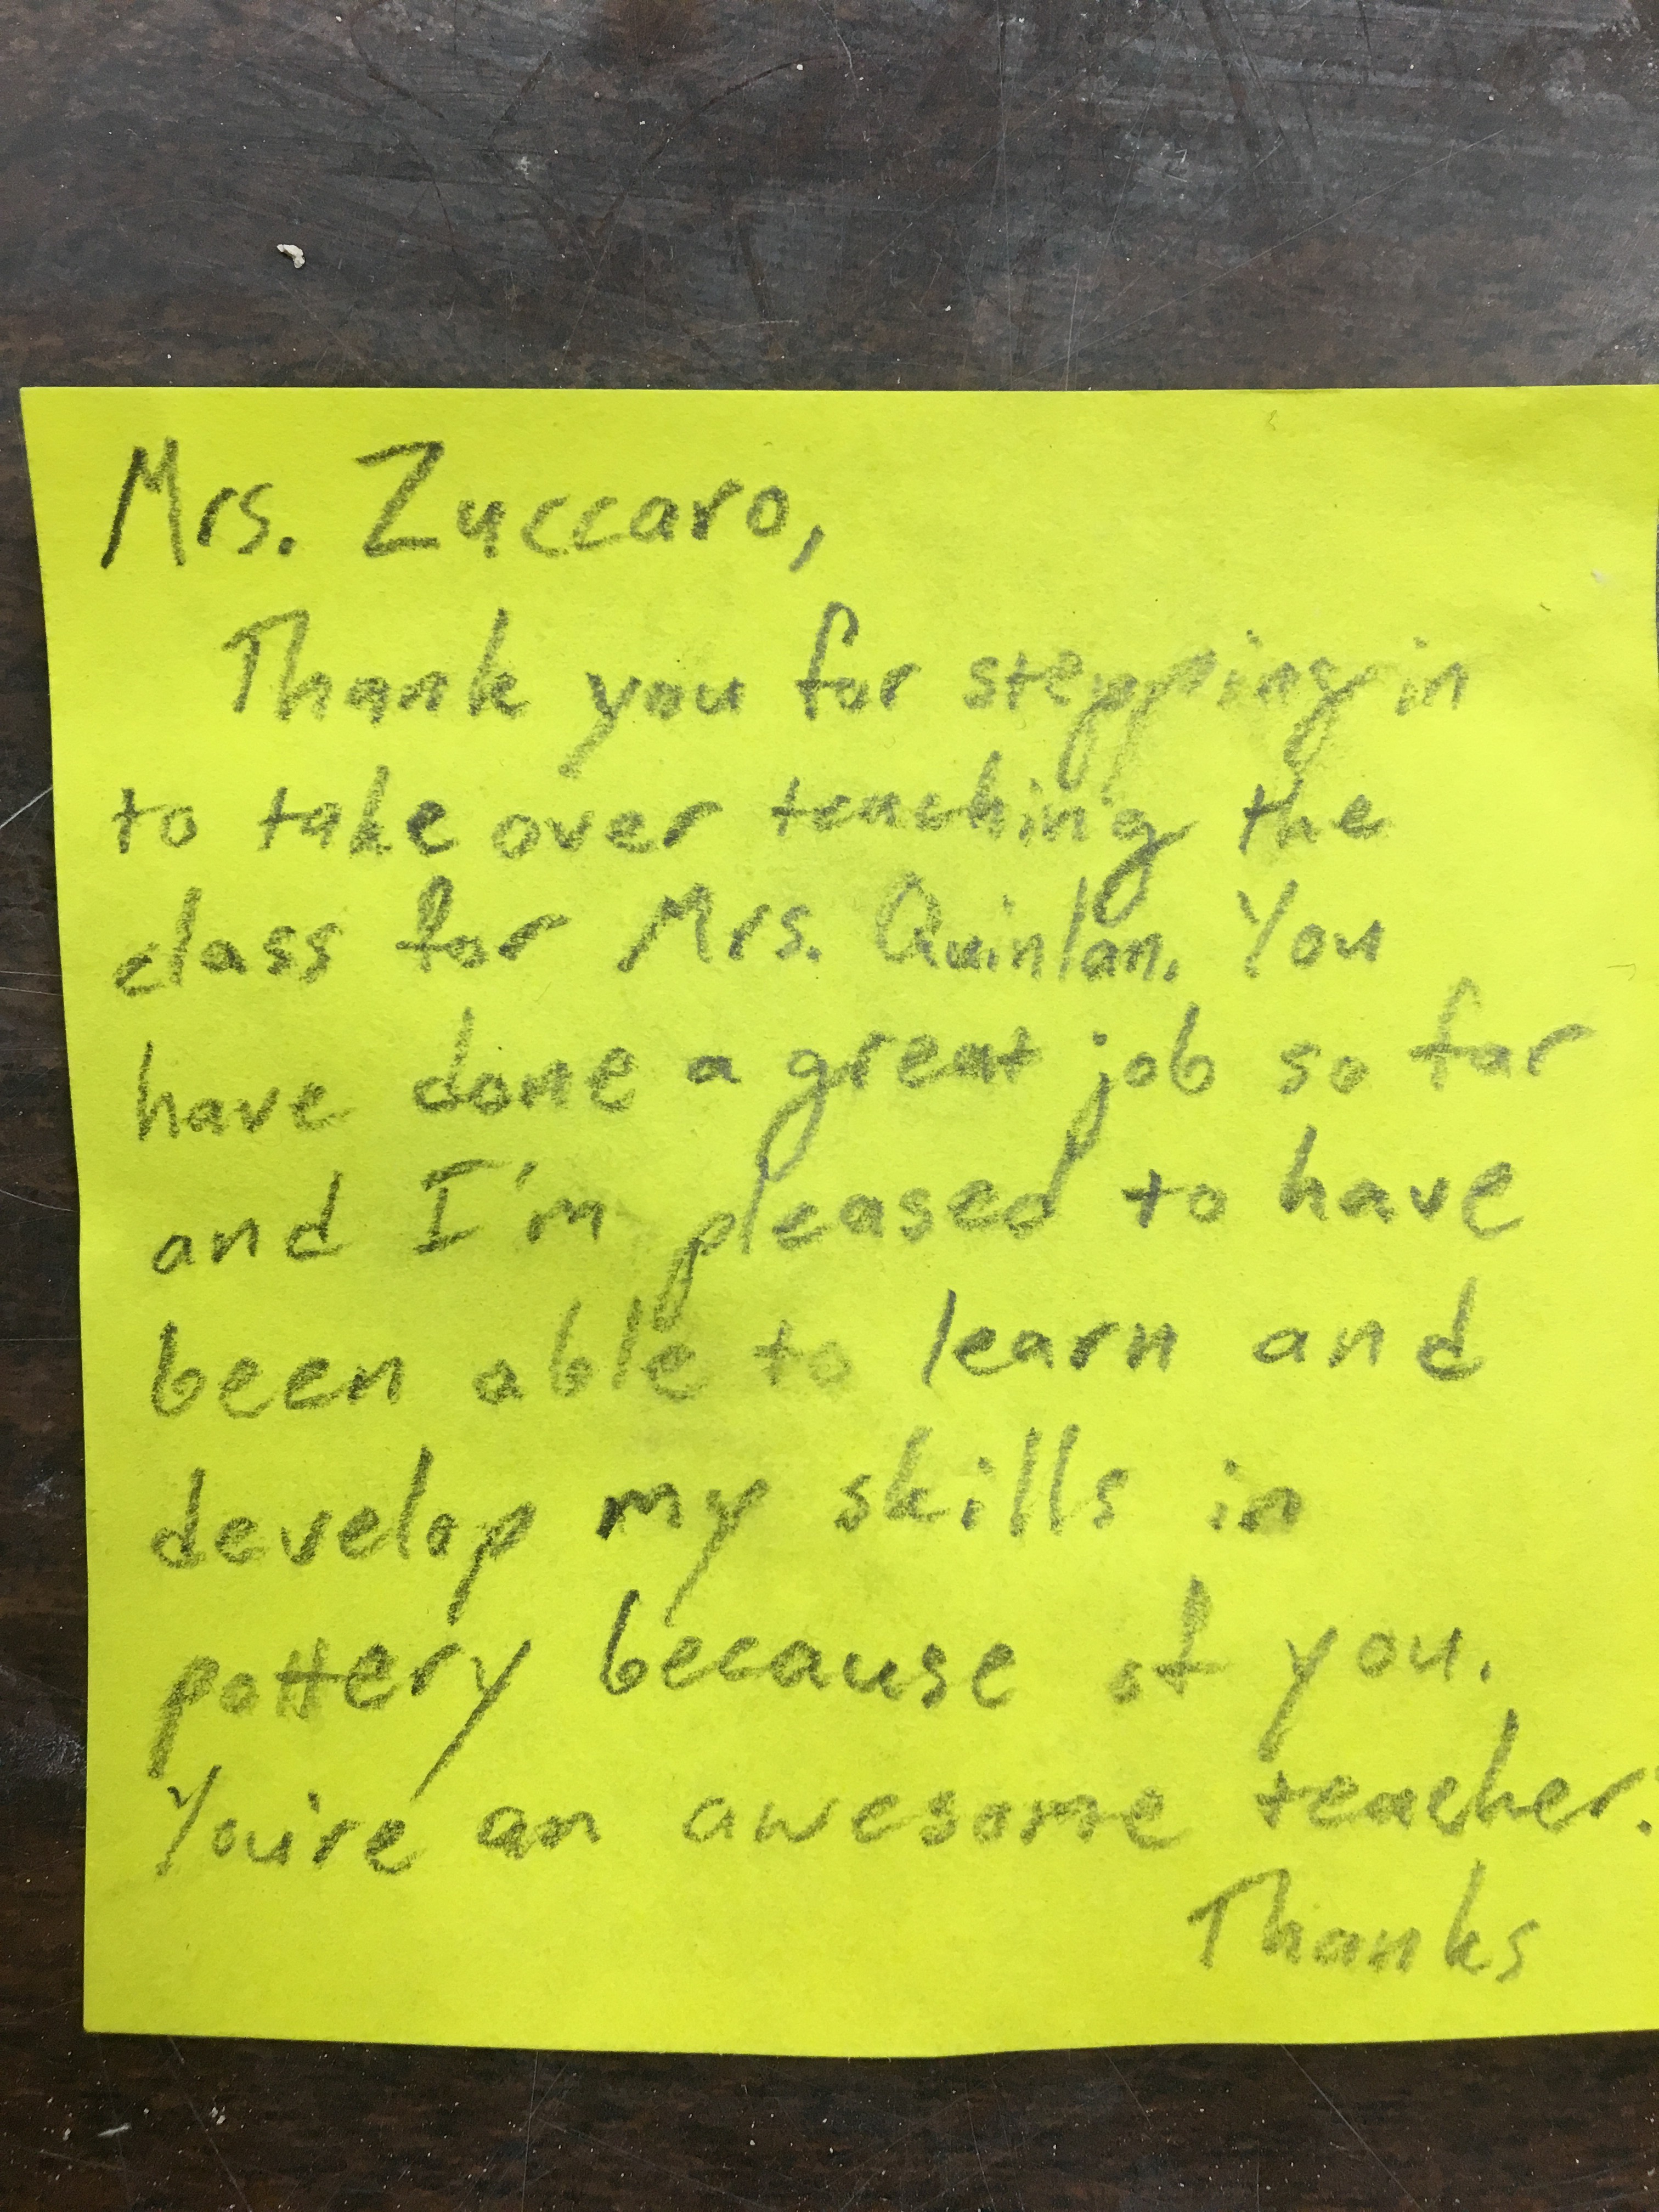 Mrs. Zuccaro,
Thank you for stepping in
to take over teaching the
class for Mrs. Quinlan. You
have done a great job so far
and I'm pleased to have
been able to learn and
develop my skills in
pottery because of you.
You're an awesome teacher.
Thanks